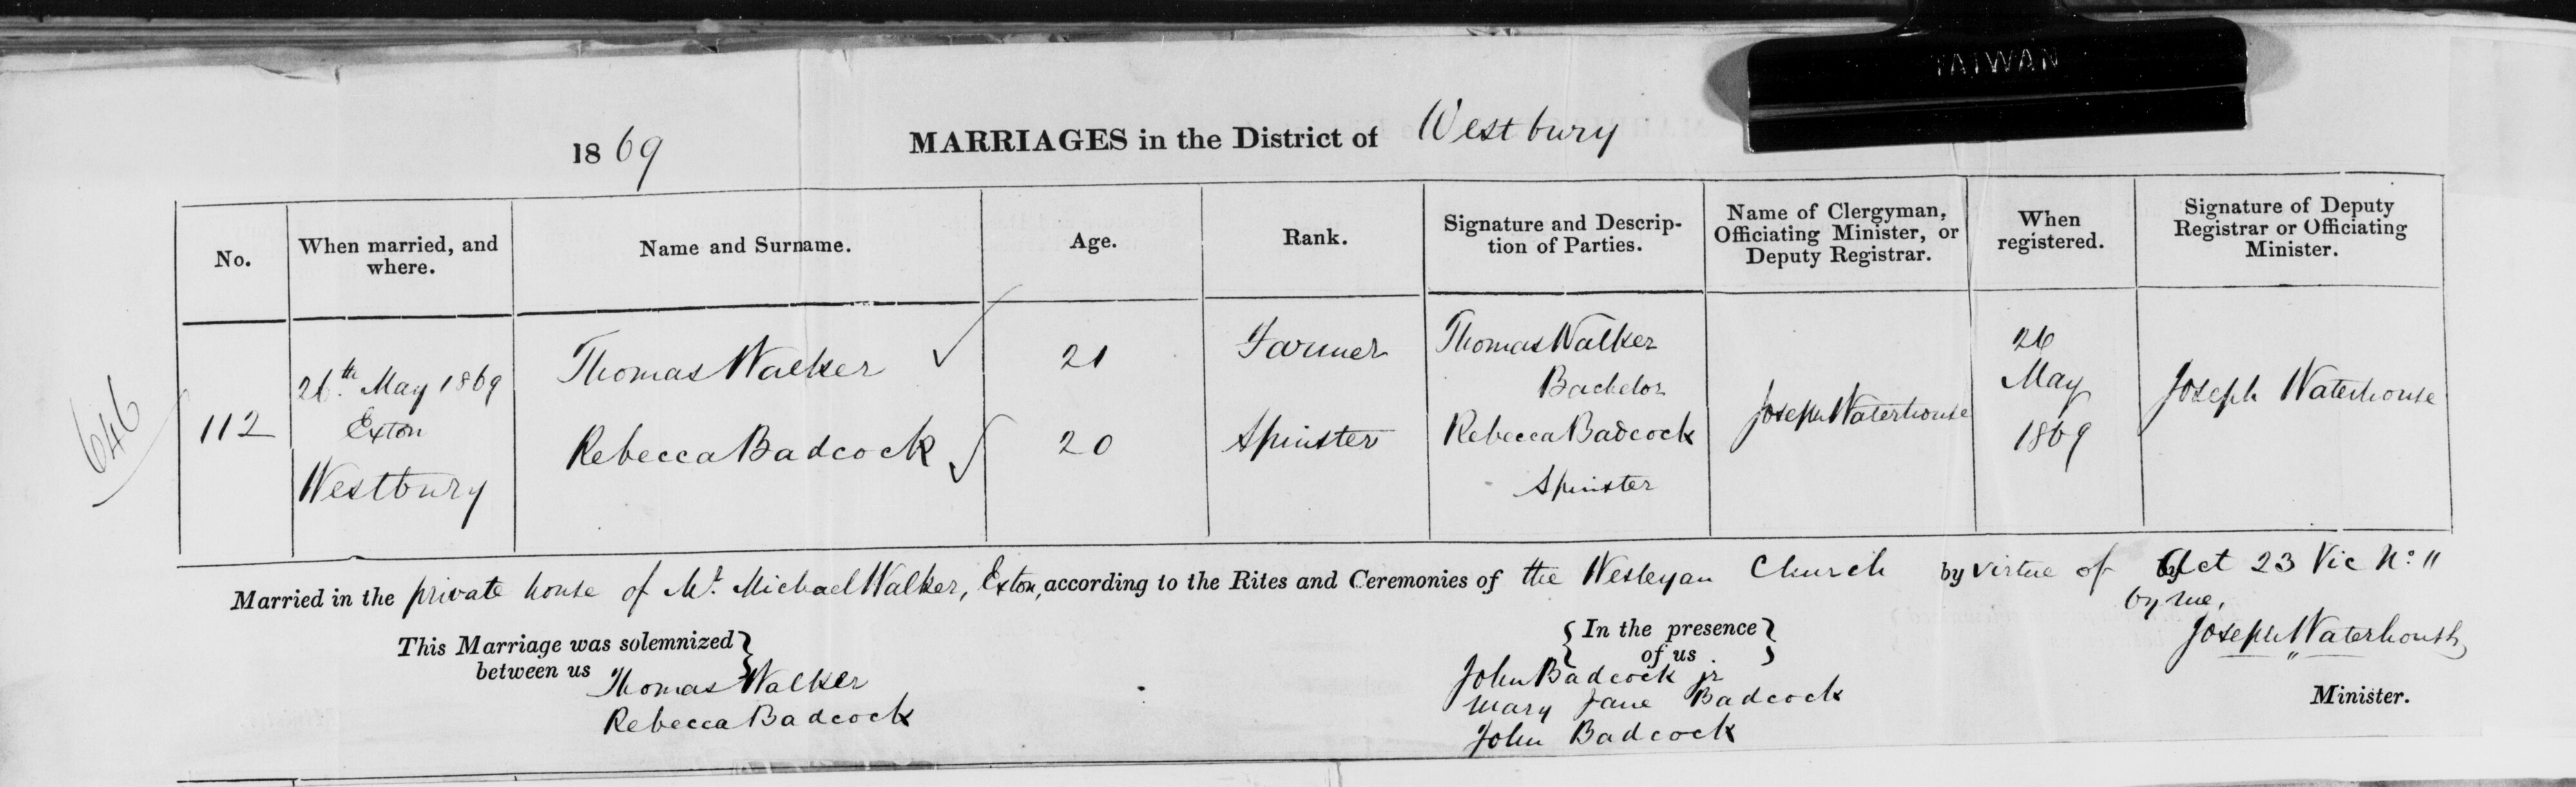 TAIWAN
1869 MARRIAGES in the District of Westbury
No. When married, and where. Name and Surname. Age. Rank. Signature and Description of Parties. Name of Clergyman, Officiating Minister, or Deputy Registrar. When registered. Signature of Deputy Registrar or Officiating Minister.
646
112
26.th May 1869
Exton
Westbury
Thomas Walker
Rebecca Badcock
21
20
Farmer
Spinster
Thomas Walker
Bachelor
Rebecca Badcock
Spinster
Joseph Waterhouse
26
May
1869
Joseph Waterhouse
Married in the private house of Mr. Michael Walker, Exton, according to the Rites and Ceremonies of the Wesleyan Church by virtue of Act 23 Vic No. 11
by me,
This Marriage was solemnized
between us
Thomas Walker
Rebecca Badcock
In the presence
of us
John Badcock jr
Mary Jane Badcock
John Badcock
Joseph Waterhouse
Minister.